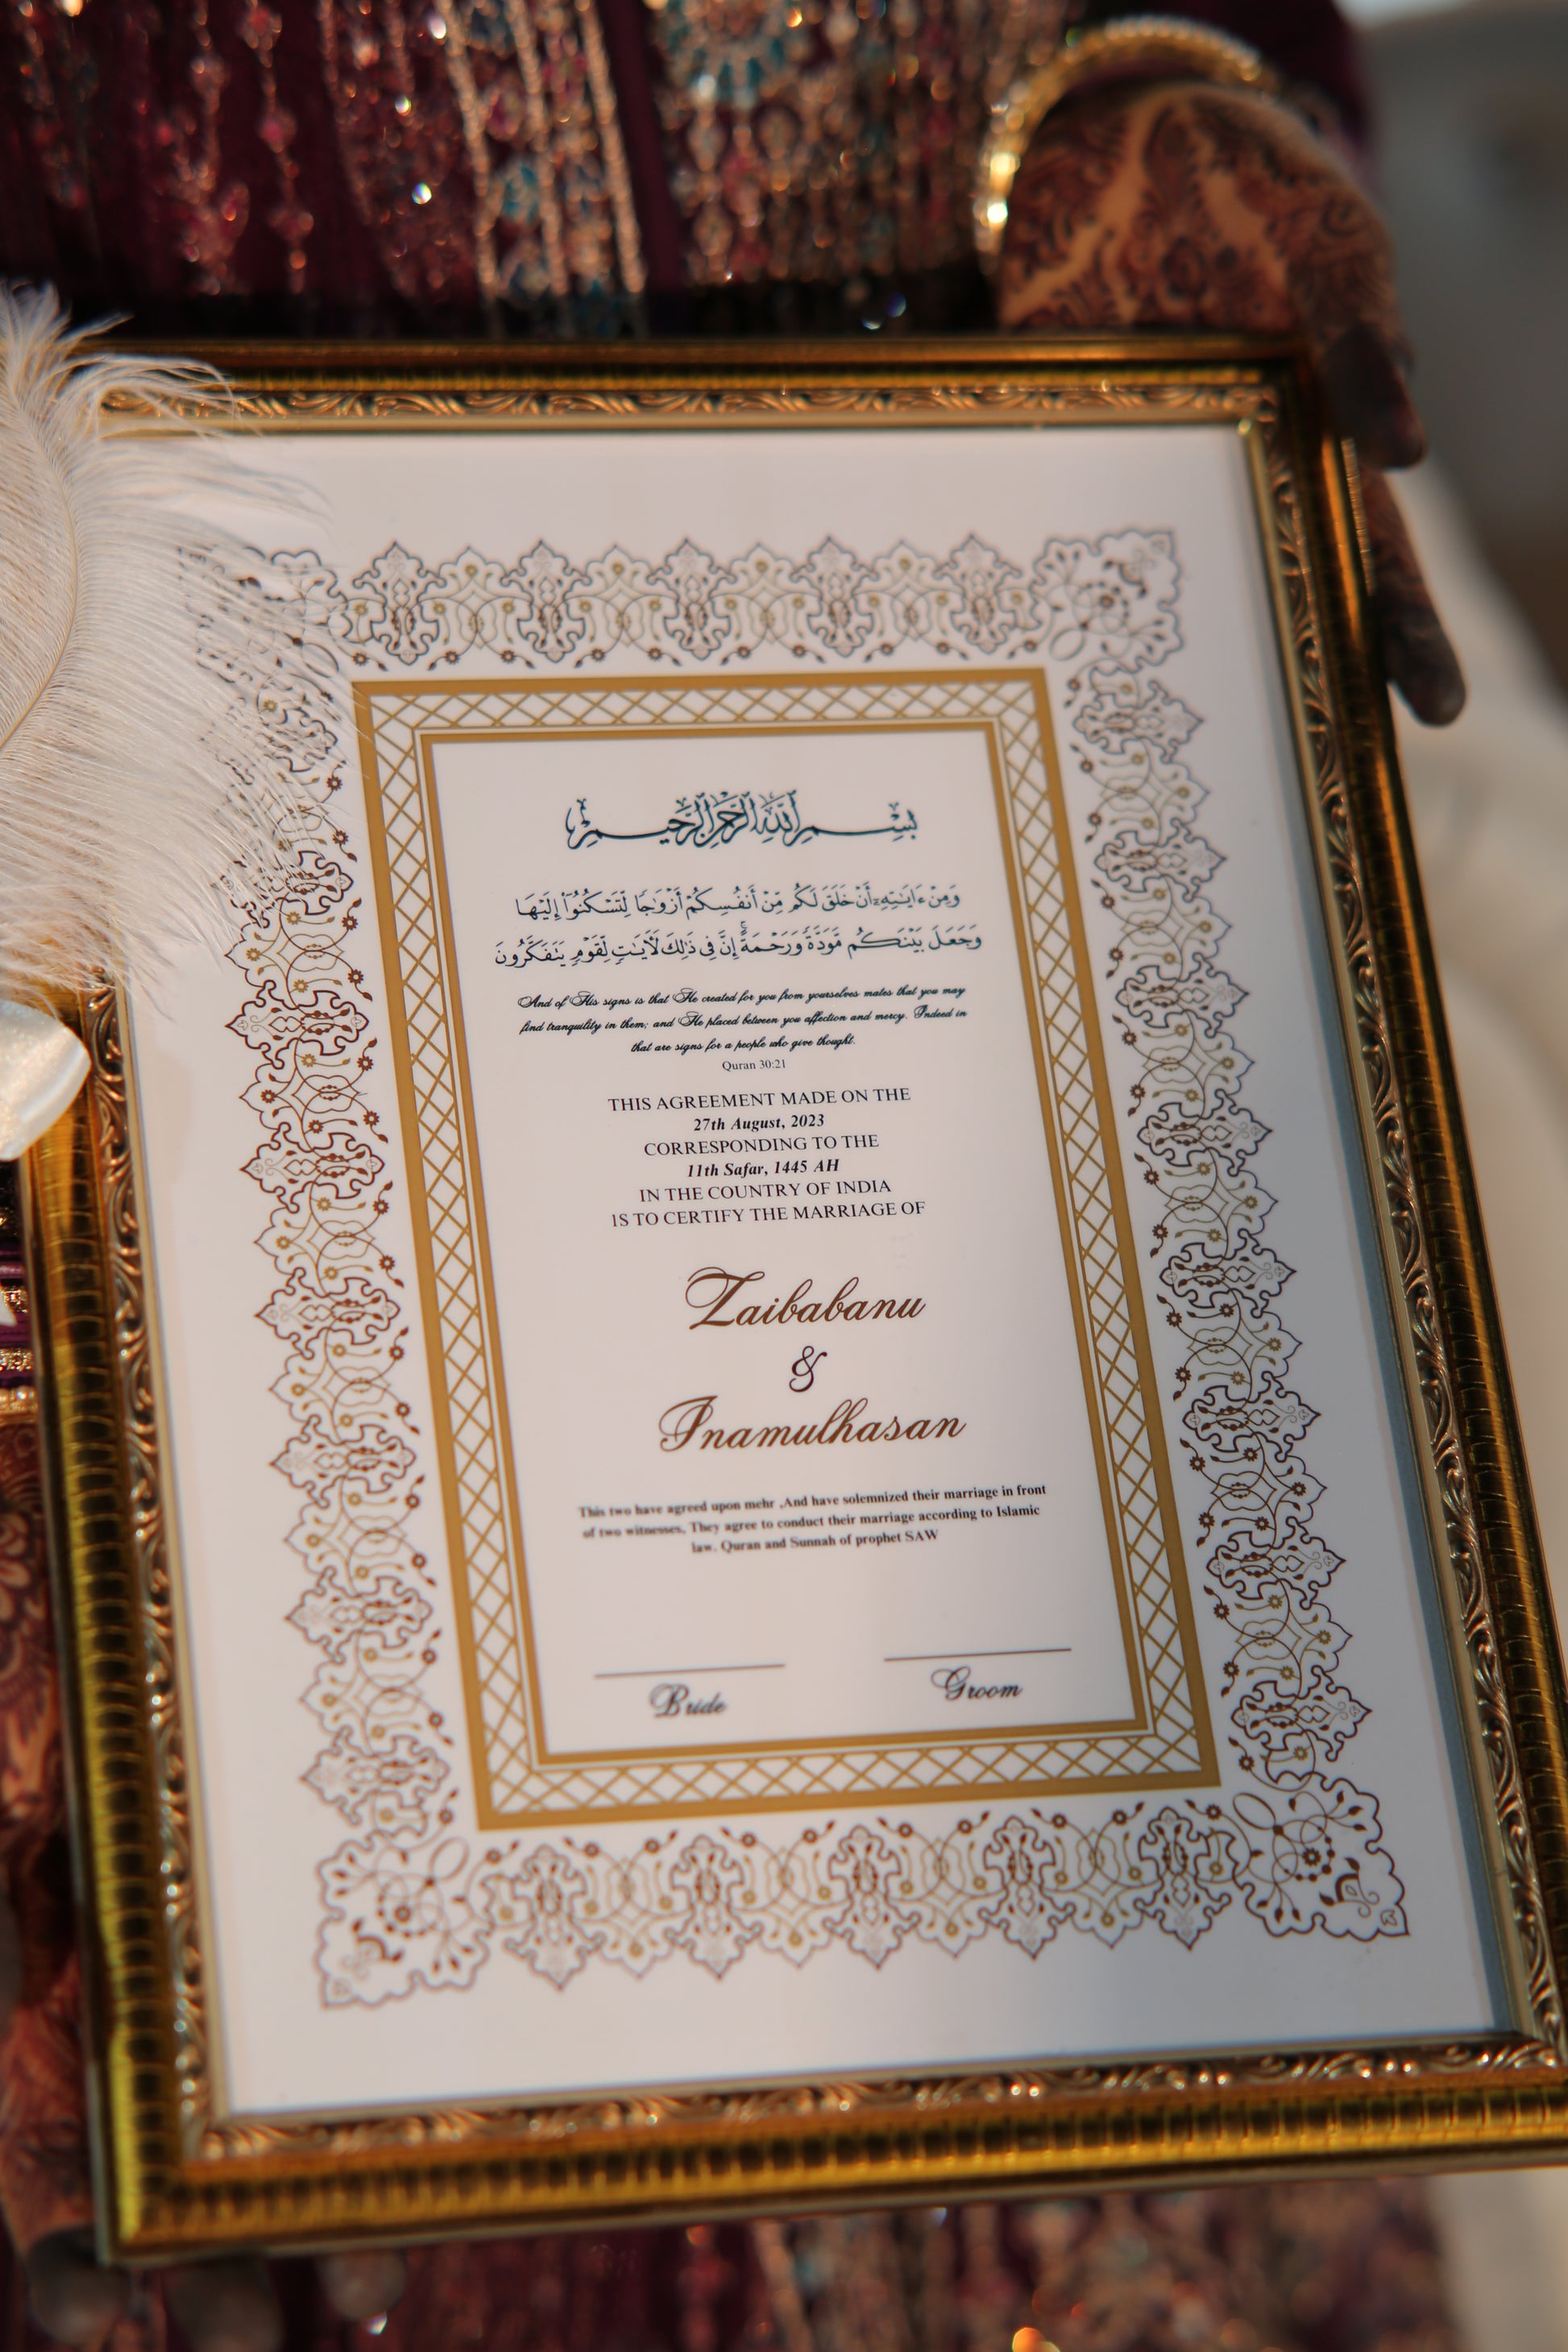 بسم الله الرحمن الرحيم
وَمِنْ ءَايَٰتِهِۦٓ أَنْ خَلَقَ لَكُم مِّنْ أَنفُسِكُمْ أَزْوَٰجًا لِّتَسْكُنُوٓا۟ إِلَيْهَا
وَجَعَلَ بَيْنَكُم مَّوَدَّةً وَرَحْمَةً ۚ إِنَّ فِى ذَٰلِكَ لَـَٔايَٰتٍ لِّقَوْمٍ يَتَفَكَّرُونَ
And of His signs is that He created for you from yourselves mates that you may
find tranquility in them; and He placed between you affection and mercy. Indeed in
that are signs for a people who give thought.
Quran 30:21
THIS AGREEMENT MADE ON THE
27th August, 2023
CORRESPONDING TO THE
11th Safar, 1445 AH
IN THE COUNTRY OF INDIA
IS TO CERTIFY THE MARRIAGE OF
Zaibabanu
&
Inamulhasan
This two have agreed upon mehr ,And have solemnized their marriage in front
of two witnesses, They agree to conduct their marriage according to Islamic
law. Quran and Sunnah of prophet SAW
Bride Groom